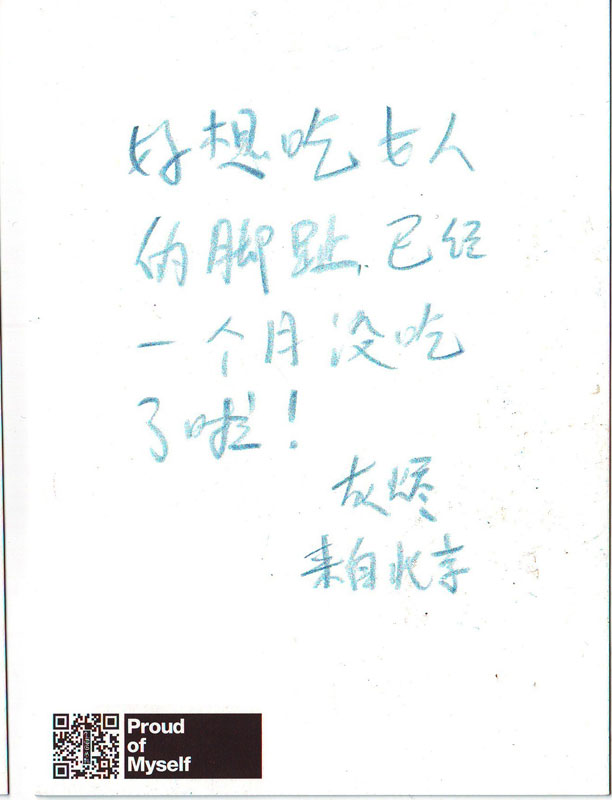 好想吃女人
的脚趾,已经
一个月没吃
了啦!
灰烬
来自北京
Proud
of
Myself